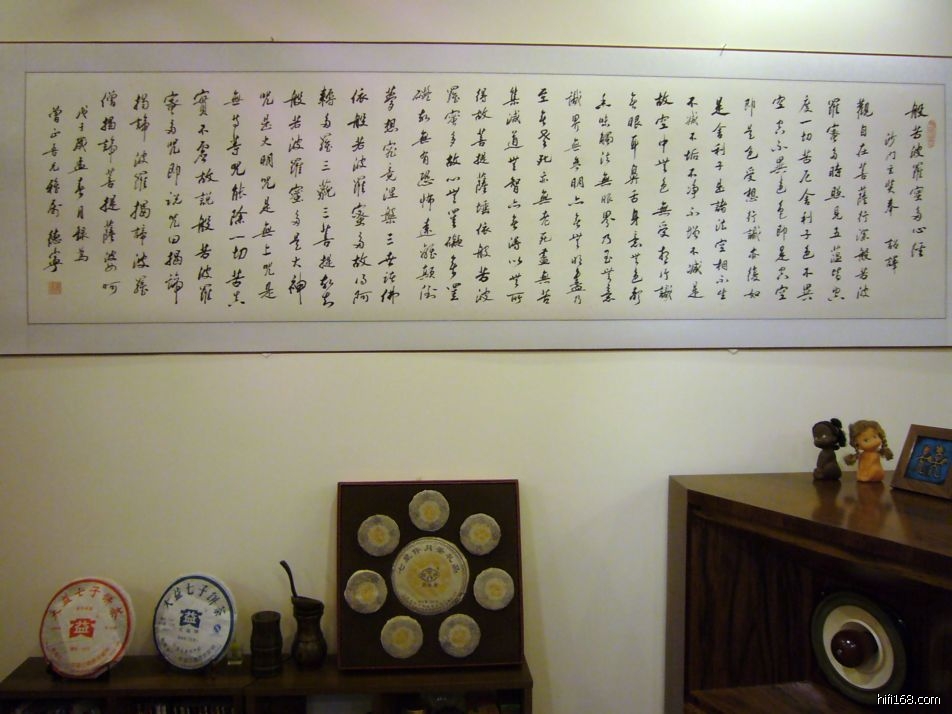 般若波羅蜜多心經
沙門玄奘奉 詔譯
觀自在菩薩行深般若波
羅蜜多時照見五蘊皆空
度一切苦厄舍利子色不異
空空不異色色即是空空
即是色受想行識亦復如
是舍利子是諸法空相不生
不滅不垢不淨不增不減是
故空中無色無受想行識
無眼耳鼻舌身意無色聲
香味觸法無眼界乃至無意
識界無無明亦無無明盡乃
至無老死亦無老死盡無苦
集滅道無智亦無得以無所
得故菩提薩埵依般若波
羅蜜多故心無罣礙無罣
礙故無有恐怖遠離顛倒
夢想究竟涅槃三世諸佛
依般若波羅蜜多故得阿
耨多羅三藐三菩提故知
般若波羅蜜多是大神
咒是大明咒是無上咒是
無等等咒能除一切苦真
實不虛故說般若波羅
蜜多咒即說咒曰揭諦
揭諦波羅揭諦波羅
僧揭諦菩提薩婆訶
戊子歲孟春月錄為
大益七子餅茶
益
大益七子饼茶
益
七星伴月茶礼品
hifi168.com